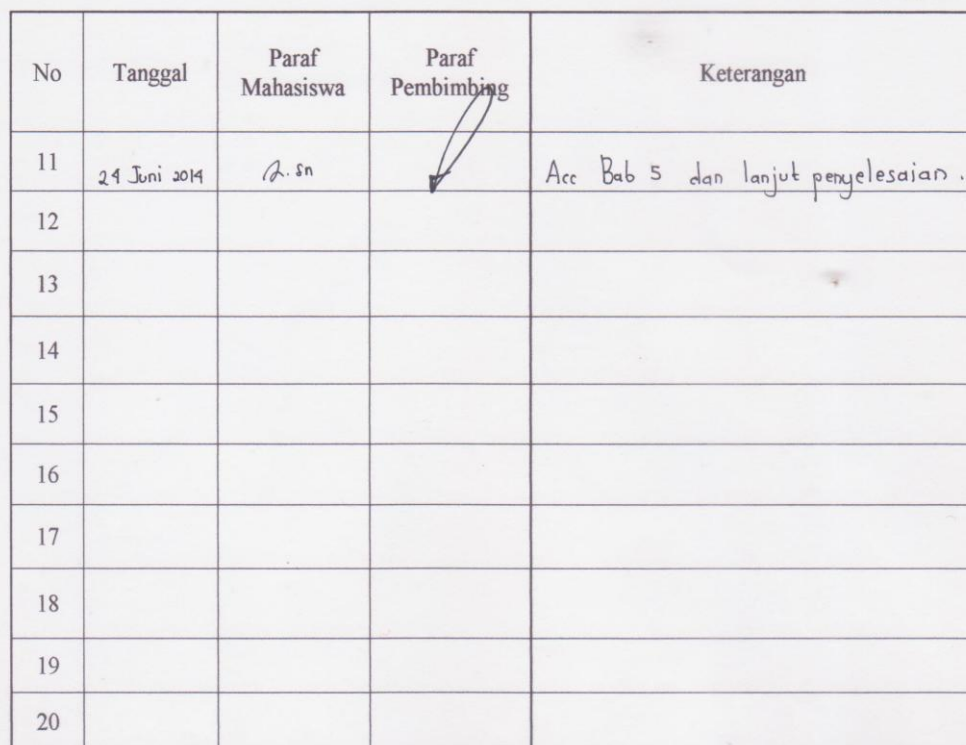 No Tanggal Paraf Mahasiswa Paraf Pembimbing Keterangan
11 24 Juni 2014 Acc Bab 5 dan lanjut penyelesaian.
12
13
14
15
16
17
18
19
20